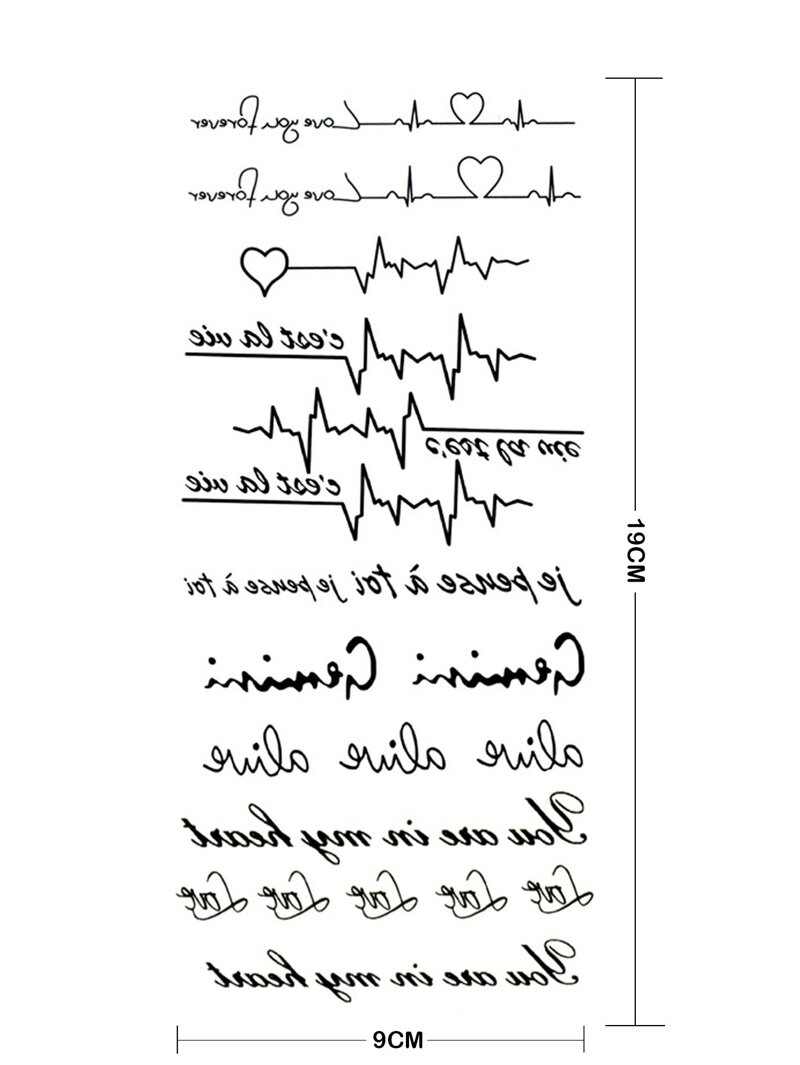 Love you forever
Love you forever
c'est la vie
c'est la vie
c'est la vie
je pense à toi je pense à toi
Gemini Gemini
alive alive alive
You are in my heart
Love Love Love Love Love
You are in my heart
19CM
9CM